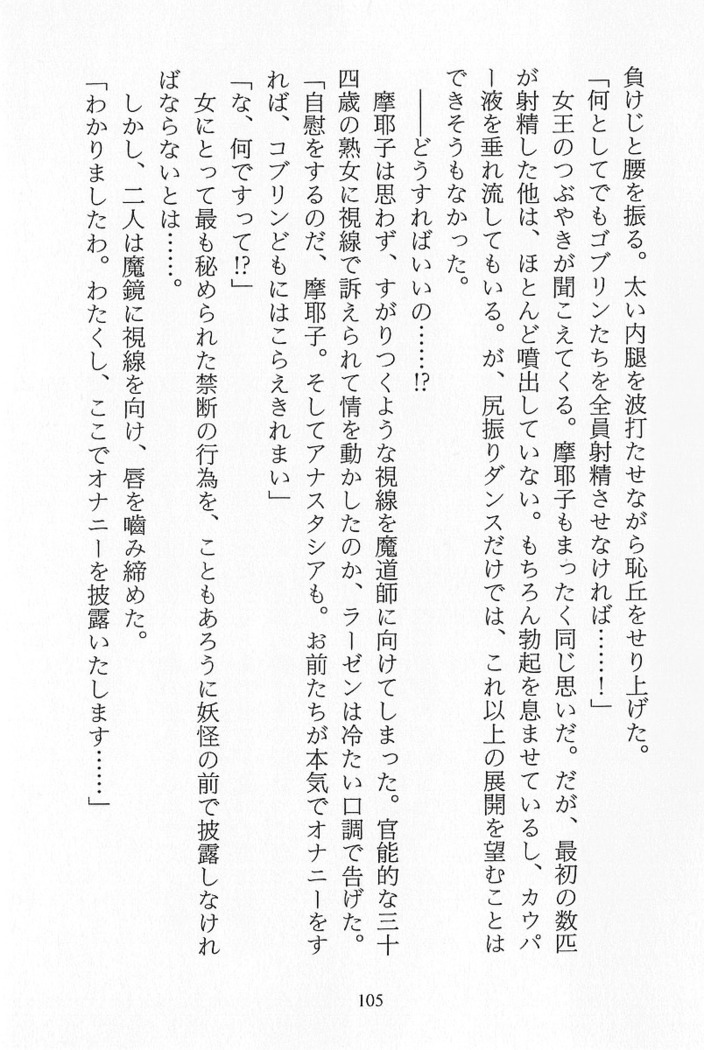 負けじと腰を振る。太い内腿を波打たせながら恥丘をせり上げた。
「何としてでもゴブリンたちを全員射精させなければ……！」
女王のつぶやきが聞こえてくる。摩耶子もまったく同じ思いだ。だが、最初の数匹
が射精した他は、ほとんど噴出していない。もちろん勃起を息ませているし、カウパ
ー液を垂れ流してもいる。が、尻振りダンスだけでは、これ以上の展開を望むことは
できそうもなかった。
――どうすればいいの……!?
摩耶子は思わず、すがりつくような視線を魔道師に向けてしまった。官能的な三十
四歳の熟女に視線で訴えられて情を動かしたのか、ラーゼンは冷たい口調で告げた。
「自慰をするのだ、摩耶子。そしてアナスタシアも。お前たちが本気でオナニーをす
れば、コブリンどもにはこらえきれまい」
「な、何ですって!?」
女にとって最も秘められた禁断の行為を、こともあろうに妖怪の前で披露しなけれ
ばならないとは……。
しかし、二人は魔鏡に視線を向け、唇を嚙み締めた。
「わかりましたわ。わたくし、ここでオナニーを披露いたします……」
105